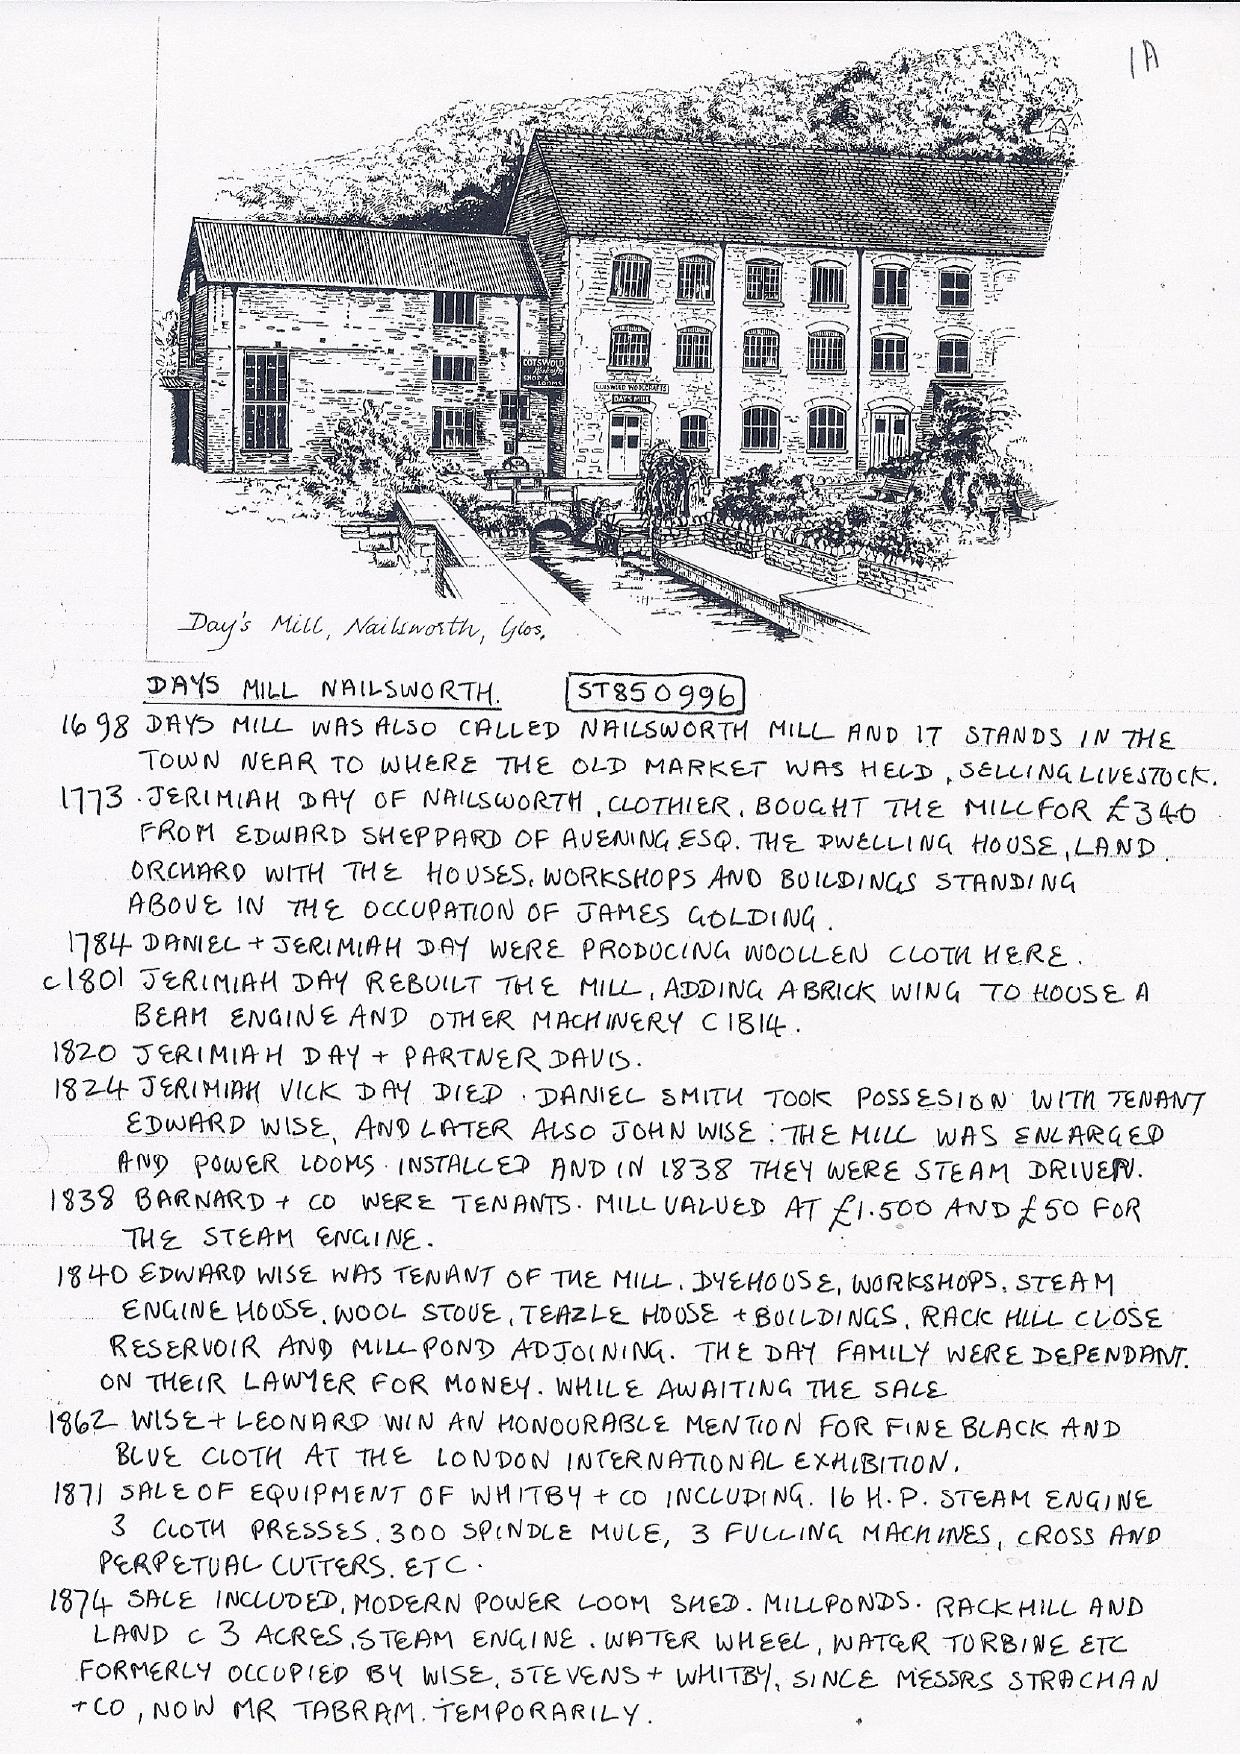 1A
COTSWOLD
SHOP &
LOOMS
COTSWOLD WOOLCRAFTS
DAYS MILL
Day's Mill, Nailsworth, Glos.
DAYS MILL NAILSWORTH. ST850996
1698 DAYS MILL WAS ALSO CALLED NAILSWORTH MILL AND IT STANDS IN THE
TOWN NEAR TO WHERE THE OLD MARKET WAS HELD, SELLING LIVESTOCK.
1773 . JERIMIAH DAY OF NAILSWORTH, CLOTHIER. BOUGHT THE MILL FOR £340
FROM EDWARD SHEPPARD OF AVENING ESQ. THE DWELLING HOUSE, LAND.
ORCHARD WITH THE HOUSES. WORKSHOPS AND BUILDINGS STANDING
ABOVE IN THE OCCUPATION OF JAMES GOLDING.
1784 DANIEL + JERIMIAH DAY WERE PRODUCING WOOLLEN CLOTH HERE.
c1801 JERIMIAH DAY REBUILT THE MILL, ADDING A BRICK WING TO HOUSE A
BEAM ENGINE AND OTHER MACHINERY C1814.
1820 JERIMIAH DAY + PARTNER DAVIS.
1824 JERIMIAH VICK DAY DIED. DANIEL SMITH TOOK POSSESION WITH TENANT
EDWARD WISE, AND LATER ALSO JOHN WISE : THE MILL WAS ENLARGED
AND POWER LOOMS INSTALLED AND IN 1838 THEY WERE STEAM DRIVEN.
1838 BARNARD + CO WERE TENANTS. MILL VALUED AT £1.500 AND £50 FOR
THE STEAM ENGINE.
1840 EDWARD WISE WAS TENANT OF THE MILL. DYEHOUSE, WORKSHOPS. STEAM
ENGINE HOUSE. WOOL STOVE, TEAZLE HOUSE + BUILDINGS, RACK HILL CLOSE
RESERVOIR AND MILLPOND ADJOINING. THE DAY FAMILY WERE DEPENDANT.
ON THEIR LAWYER FOR MONEY. WHILE AWAITING THE SALE
1862 WISE + LEONARD WIN AN HONOURABLE MENTION FOR FINE BLACK AND
BLUE CLOTH AT THE LONDON INTERNATIONAL EXHIBITION.
1871 SALE OF EQUIPMENT OF WHITBY + CO INCLUDING. 16 H.P. STEAM ENGINE
3 CLOTH PRESSES. 300 SPINDLE MULE, 3 FULLING MACHINES, CROSS AND
PERPETUAL CUTTERS. ETC.
1874 SALE INCLUDED, MODERN POWER LOOM SHED. MILLPONDS. RACKHILL AND
LAND c 3 ACRES, STEAM ENGINE. WATER WHEEL, WATER TURBINE ETC
FORMERLY OCCUPIED BY WISE, STEVENS + WHITBY, SINCE MESSRS STRACHAN
+CO, NOW MR TABRAM. TEMPORARILY.